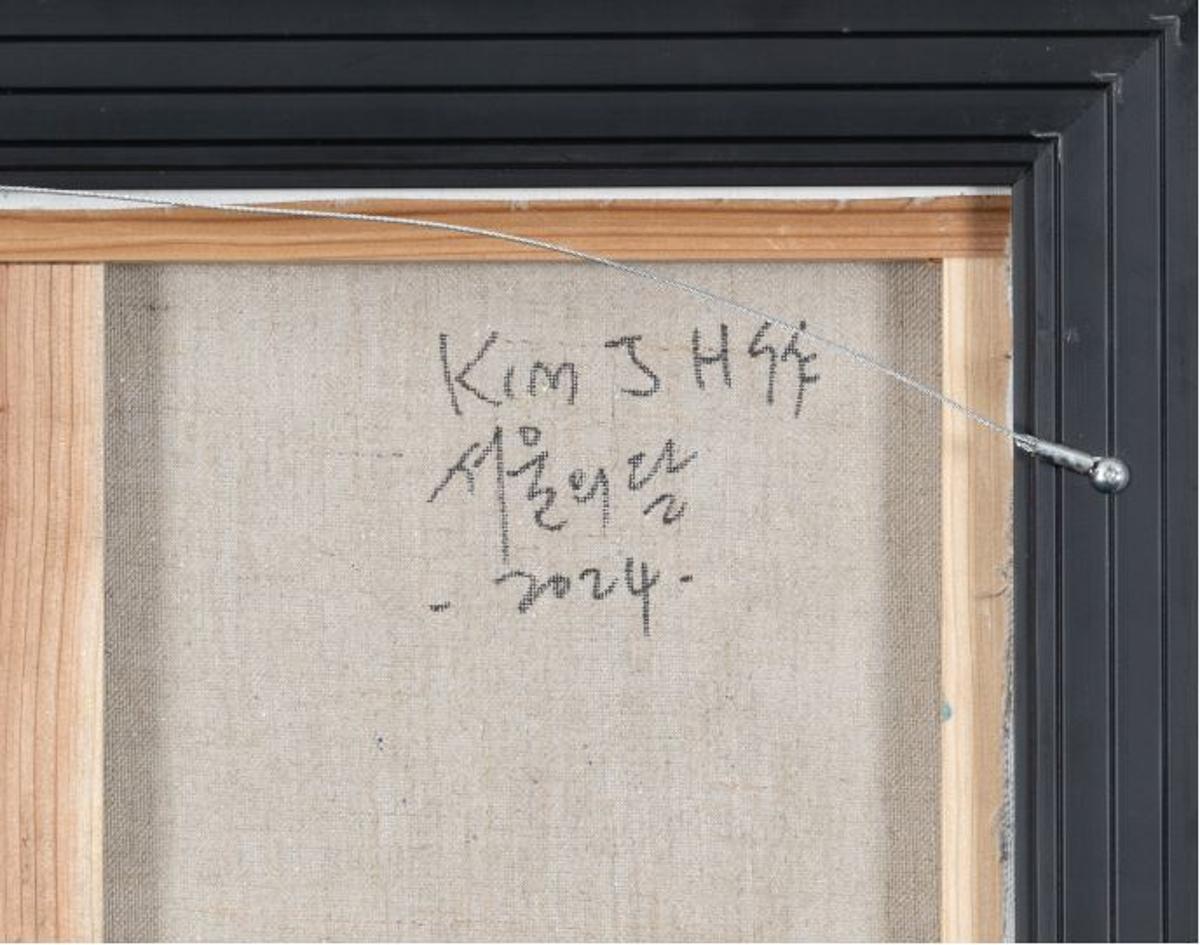 Kim J H 作
서울의달
- 2024 -